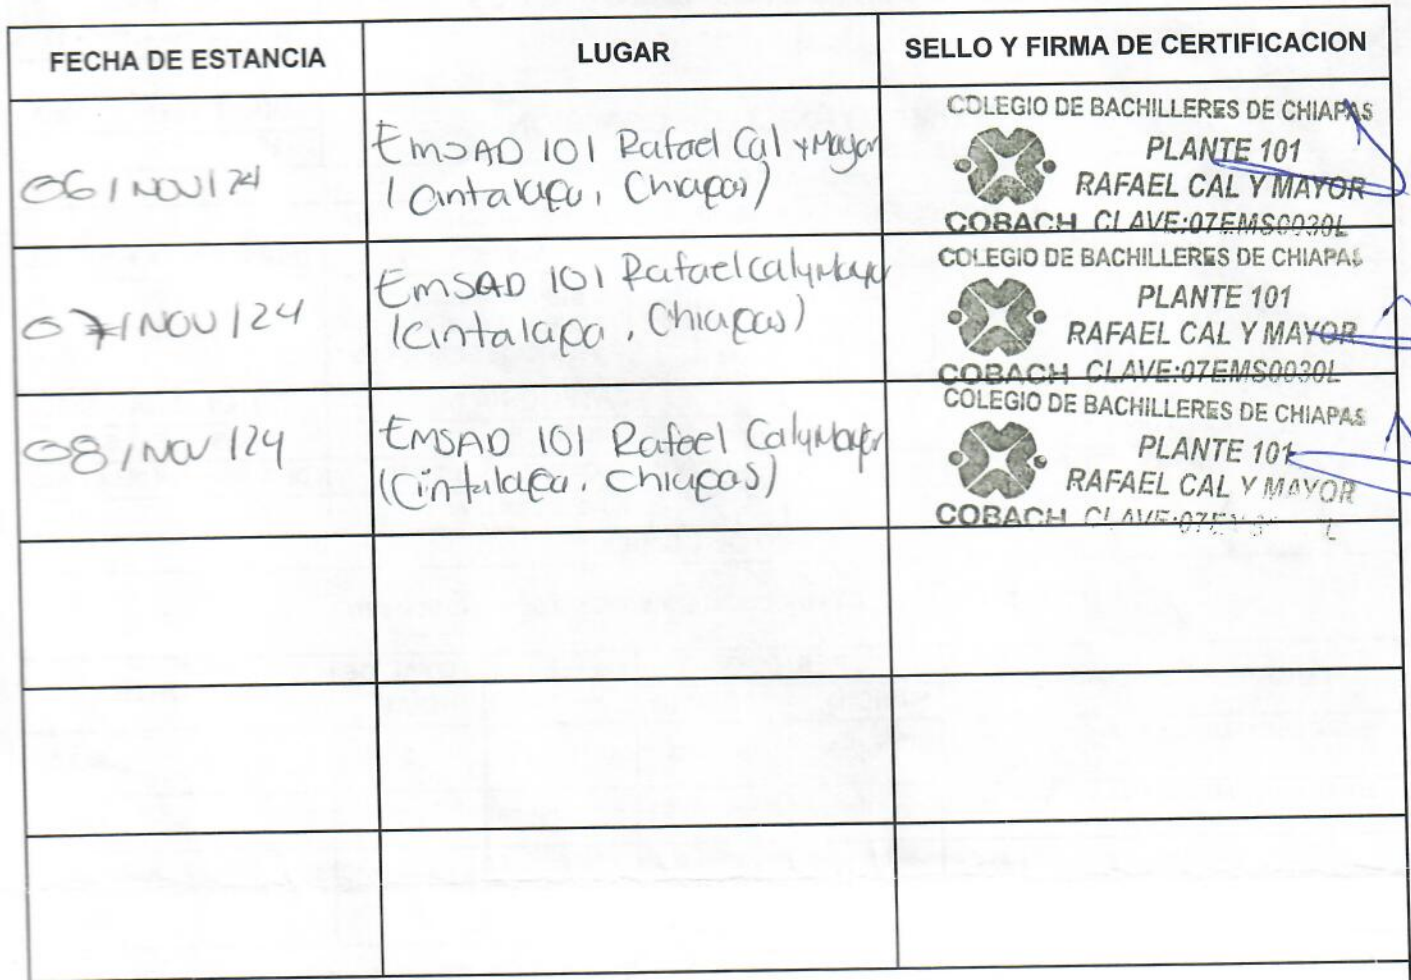 FECHA DE ESTANCIA
LUGAR
SELLO Y FIRMA DE CERTIFICACION
06/NOV/24
EMSAD 101 Rafael Cal y Mayor
(Cintalapa, Chiapas)
COLEGIO DE BACHILLERES DE CHIAPAS
PLANTE 101
RAFAEL CAL Y MAYOR
COBACH CLAVE:07EMS0030L
07/NOV/24
EMSAD 101 Rafael Cal y Mayor
(Cintalapa, Chiapas)
COLEGIO DE BACHILLERES DE CHIAPAS
PLANTE 101
RAFAEL CAL Y MAYOR
COBACH CLAVE:07EMS0030L
08/NOV/24
EMSAD 101 Rafael Cal y Mayor
(Cintalapa, Chiapas)
COLEGIO DE BACHILLERES DE CHIAPAS
PLANTE 101
RAFAEL CAL Y MAYOR
COBACH CLAVE: